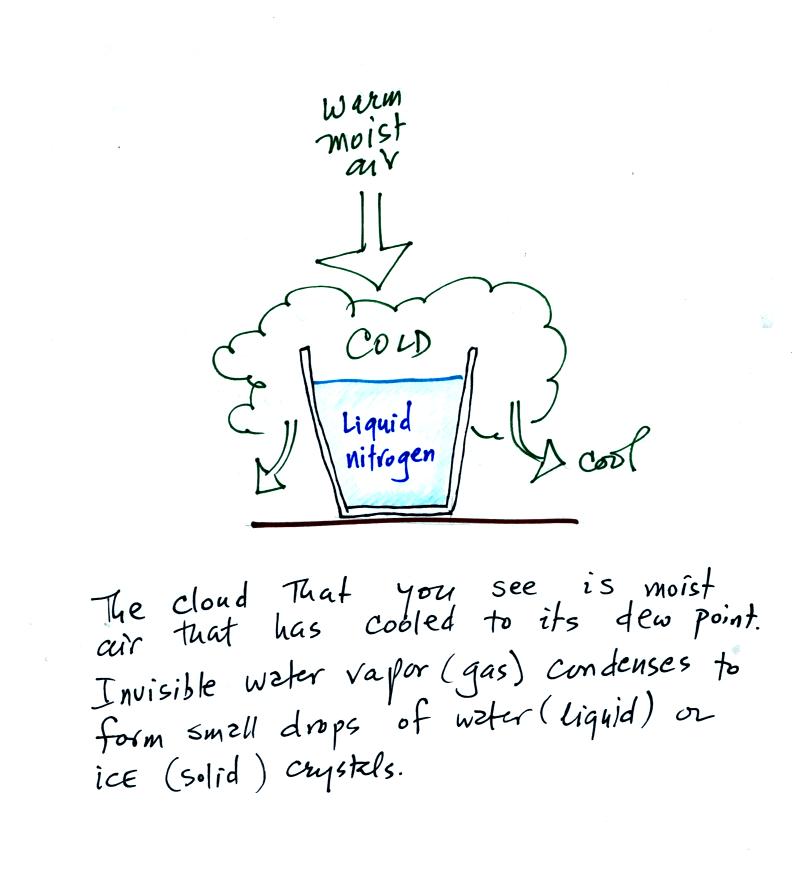 Warm
moist
air
COLD
Liquid
nitrogen
cool
The cloud That you see is moist
air that has cooled to its dew point.
Invisible water vapor (gas) condenses to
form small drops of water (liquid) or
ICE (solid) crystals.